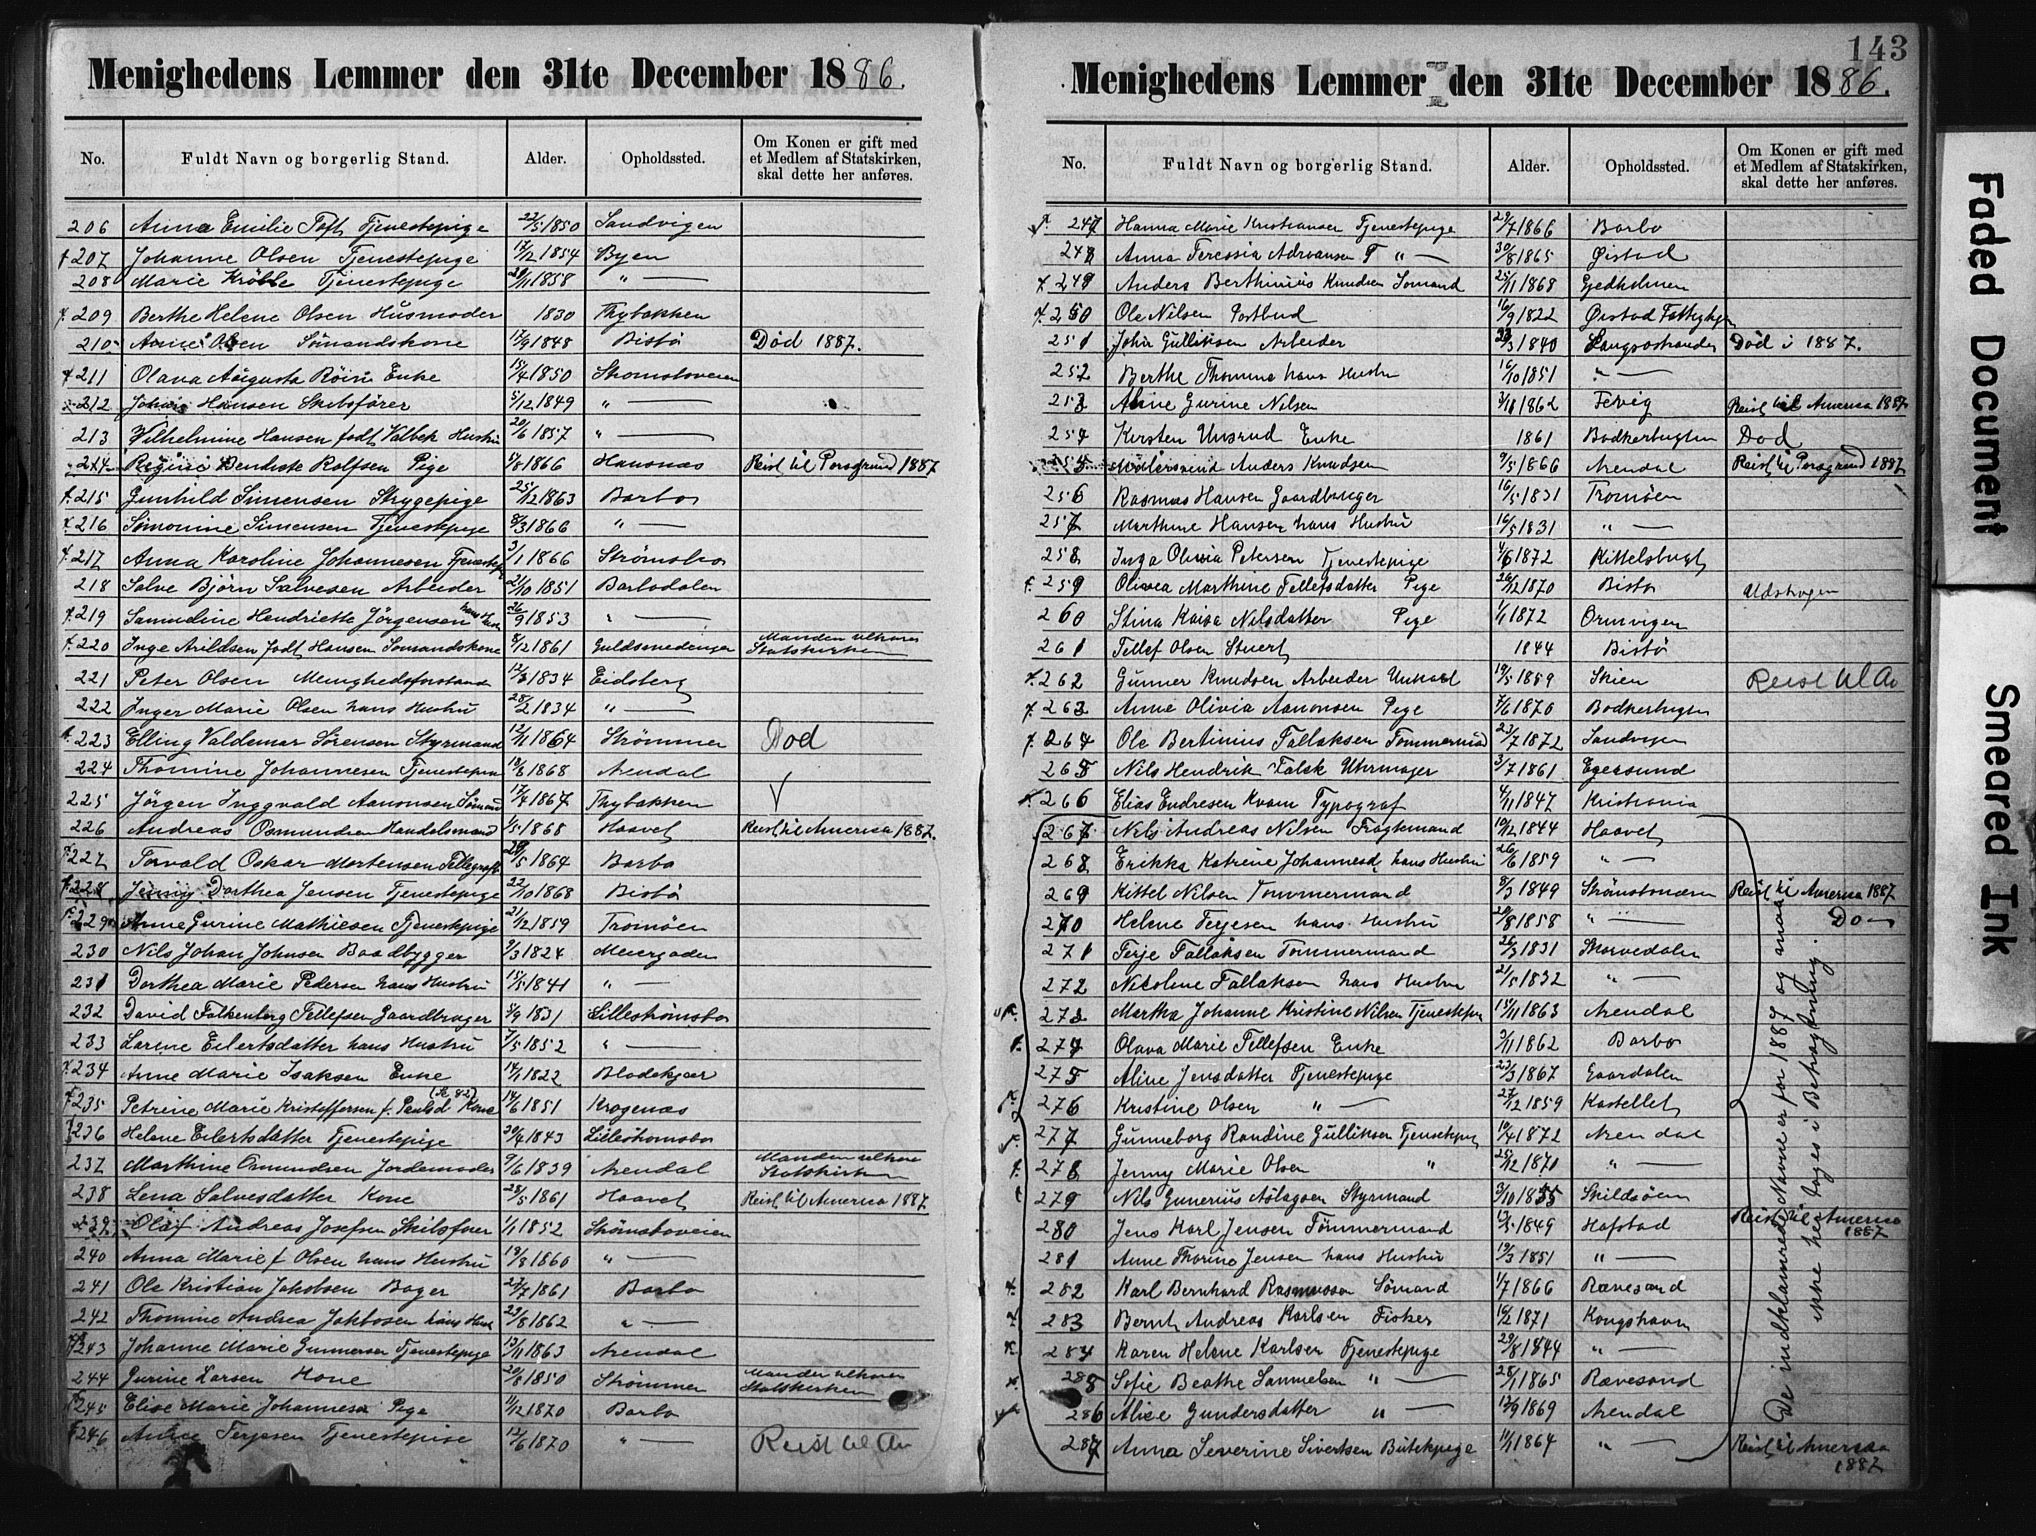 143
Menighedens Lemmer den 31te December 1886.
No. Fuldt Navn og borgerlig Stand. Alder. Opholdssted. Om Konen er gift med et Medlem af Statskirken, skal dette her anføres.
206 Anna Emilie Toft Tjenestepige 22/5 1850 Sandvigen
207 Johanne Olsen Tjenestepige 17/12 1854 Byen
208 Marie Krøble Tjenestepige 29/11 1858 " —
209 Berthe Helene Olsen Husmoder 1830 Thybakken
210 Anne Olsen Sömandskone 17/9 1848 Bisbö Död 1887.
211 Olava Augusta Röin Enke 15/4 1850 Strömsboveien
212 Johan Hansen Skibsförer 5/12 1849 " —
213 Wilhelmine Hansen födt Valbek Hustru 20/6 1857 " —
214 Regine Bendiste Rolfsen Pige 1/8 1866 Hansnæs Reist til Porsgrund 1887
215 Gunhild Simensen Strygepige 25/12 1863 Barbo
216 Simonine Simensen Tjenestepige 8/3 1866 " —
217 Anna Karoline Johannesen Tjenestepi 3/1 1866 Strömsbo
218 Salve Björn Salvesen Arbeider 21/10 1851 Barbodalen
219 Samueline Hendriette Jörgensen hans Hus 26/9 1853 " —
220 Inge Arildsen födt Hansen Sömandskone 8/12 1861 Guldsmedengen Manden tilhører Statskirken
221 Peter Olsen Menighedsforstand 12/3 1834 Eidsberg
222 Inger Marie Olsen hans Hustru 28/2 1834 " —
223 Elling Valdemar Sörensen Styrmand 12/11 1864 Strömmen Död
224 Thomine Johannesen Tjenestepi 13/8 1868 Arendal
225 Jörgen Inggvald Aanonsen Sömand 17/4 1867 Thybakken V
226 Andreas Osmundsen Handelsmand 1/5 1868 Haavet Reist til America 1887.
227 Torvald Oskar Mortensen Tellegrafi 29/5 1864 Barbo
228 Jenny Dorthea Jensen Tjenestepige 22/10 1868 Bisbö
229 Anne Gurine Mathiesen Tjenestepige 21/12 1859 Tromöen
230 Nils Johan Johnsen Baadbygger 9/3 1824 Meiergaden
231 Dorthea Marie Pedersen hans Hustru 15/5 1841 " —
232 David Falkenberg Tellefsen Gaardbruger 5/9 1831 Lilleströmsbo
233 Larene Eilertsdatter hans Hustru 7/5 1852 " —
234 Anne Marie Isaksen Enke 14/1 1822 Blødekjær
235 Petrine Marie Kristoffersen f. Paulsd Kone 14/6 1851 Krogenæs
236 Helene Eilertsdatter Tjenestepige 20/4 1843 Lilleströmsbo
237 Marthine Osmundsen Jordemoder 9/6 1839 Arendal Manden tilhøre Statskirken
238 Lena Salvesdatter Kone 28/5 1861 Haavet Reist til America 1887
239 Olaf Andreas Josefsen Skibsförer 1/1 1852 Strömsboveien
240 Anna Marie f Olsen hans Hustru 19/8 1860 " —
241 Ole Kristian Jakobsen Bager 27/7 1861 Barbo
242 Thomine Andrea Jakobsen hans Hust 23/8 1862 " —
243 Johanne Marie Gunnersen Tjenestepige 13/11 1863 Arendal
244 Gurine Larsen Kone 20/8 1850 Strømmen Manden tilhører Statskirken
245 Elise Marie Johannesen Pige 11/12 1870 Barbo
246 Anne Terjesen Tjenestepige 12/6 1870 " — Reist til Am
Menighedens Lemmer den 31te December 1886.
No. Fuldt Navn og borgerlig Stand. Alder. Opholdssted. Om Konen er gift med et Medlem af Statskirken, skal dette her anføres.
247 Hanna Marie Kristiansen Tjenestepige 29/7 1866 Barbo
248 Anna Teressia Adriansen T " — 30/8 1865 Øistad
249 Anders Berthinius Knudsen Sömand 25/11 1868 Gjedholmen
250 Ole Nilsen Postbud 16/9 1822 Øistad Fattighus
251 John Gulliksen Arbeider 1840 Langsæstranden Död i 1887.
252 Berthe Thomine hans Hustru 16/10 1851 " —
253 Aline Gurine Nilsen 1862 Fevig Reist til America 1887
254 Kirsten Unsrud Enke 1861 Bødkerbugten Død
255 Anders Knudsen 9/5 1866 Arendal Reist til Porsgrund 1887
256 Rasmus Hansen Gaardbruger 16/5 1831 Tromöen
257 Marthine Hansen hans Hustru 16/5 1831 " —
258 Inga Olivia Petersen Tjenestepige 4/6 1872 Kittelsbugt
259 Olivea Marthine Tellefsdatter Pige 26/12 1870 Bisbö Uldstrøgen
260 Stina Kaisa Nilsdatter Pige 1/1 1872 Ormvigen
261 Tellef Olsen Stuert 1844 Bisbö
262 Gunner Knudsen Arbeider Unkarl 19/5 1859 Skien Reist til Am
263 Anne Olivia Aanonsen Pige 7/6 1870 Bødkerbugten
264 Ole Bertinius Fallaksen Tømmermand 23/7 1872 Sandvigen
265 Nils Hendrik Falck Uhrmager 3/7 1861 Egersund
266 Elias Endresen Kvam Typograf 4/11 1847 Kristiania
267 Nils Andreas Nilsen Fragtemand 19/12 1844 Haavet
268 Erikka Katrine Johannesd hans Hustru 26/6 1859 " —
269 Kittel Nilsen Tömmermand 8/3 1849 Strömsbonæsen Reist til America 1887
270 Helene Terjesen hans Hustru 20/8 1858 " — Do —
271 Terje Fallaksen Tömmermand 26/3 1831 Skarvedalen
272 Nicoline Fallaksen hans Hustru 21/5 1832 " —
273 Martha Johanne Kristine Nilsen Tjenestepi 15/11 1863 Arendal
274 Olava Marie Tellefsen Enke 3/11 1862 Barbo
275 Aline Jensdatter Tjenestepige 23/3 1867 Gaardalen
276 Kristine Olsen " — 27/12 1859 Kastellet
277 Gunneborg Randine Gulliksen Tjenestepig 19/4 1872 Arendal
278 Jenny Marie Olsen " 25/12 1870 " —
279 Nils Gunerius Aslagsen Styrmand 3/10 1855 Skildsöen
280 Jens Karl Jensen Tömmermand 1849 Hofstad Reist til America 1887
281 Anne Thorine Jensen hans Hustru 19/3 1851 " —
282 Karl Bernhard Rasmussen Sömand 1/7 1866 Rævesand
283 Bernt Andreas Karlsen Fisker 16/2 1871 Kongshavn
284 Karen Helene Karlsen Tjenestepige 29/8 1844 " —
285 Sofie Beathe Samuelsen " — 28/1 1865 Rævesand
286 Alice Gundersdatter " — 12/9 1869 Arendal
287 Anna Severine Sivertsen Butikpige 11/1 1864 " — Reist til America 1887
De indklamrede Navne er for 1887 og maa ikke her tages i Betragtning.
Faded Document
Smeared Ink